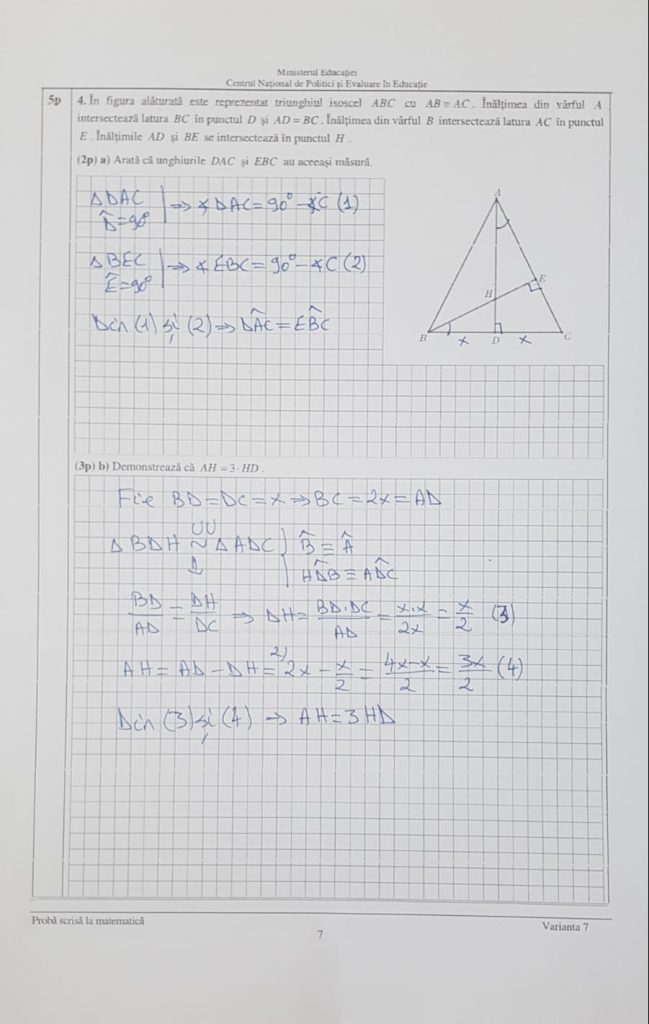 Ministerul Educației
Centrul Național de Politici și Evaluare în Educație
5p
4. În figura alăturată este reprezentat triunghiul isoscel ABC cu AB = AC. Înălțimea din vârful A
intersectează latura BC în punctul D și AD = BC. Înălțimea din vârful B intersectează latura AC în punctul
E. Înălțimile AD și BE se intersectează în punctul H.
(2p) a) Arată că unghiurile DAC și EBC au aceeași măsură.
Δ DAC
D̂=90° | ⇒ ∢ DAC = 90° − ∢C (1)
Δ BEC
Ê=90° | ⇒ ∢ EBC = 90° − ∢C (2)
Din (1) și (2) ⇒ DÂC = EB̂C
A
E
H
B
x
D
x
C
(3p) b) Demonstrează că AH = 3·HD.
Fie BD = DC = x ⇒ BC = 2x = AD
UU
Δ BDH ~ Δ ADC } B̂ ≡ Â
HD̂B ≡ AD̂C
↓
BD/AD = DH/DC ⇒ DH = BD·DC/AD = x·x/2x = x/2 (3)
AH = AD − DH = ²⁾2x − x/2 = 4x−x/2 = 3x/2 (4)
Din (3) și (4) ⇒ AH = 3HD
Probă scrisă la matematică
Varianta 7
7